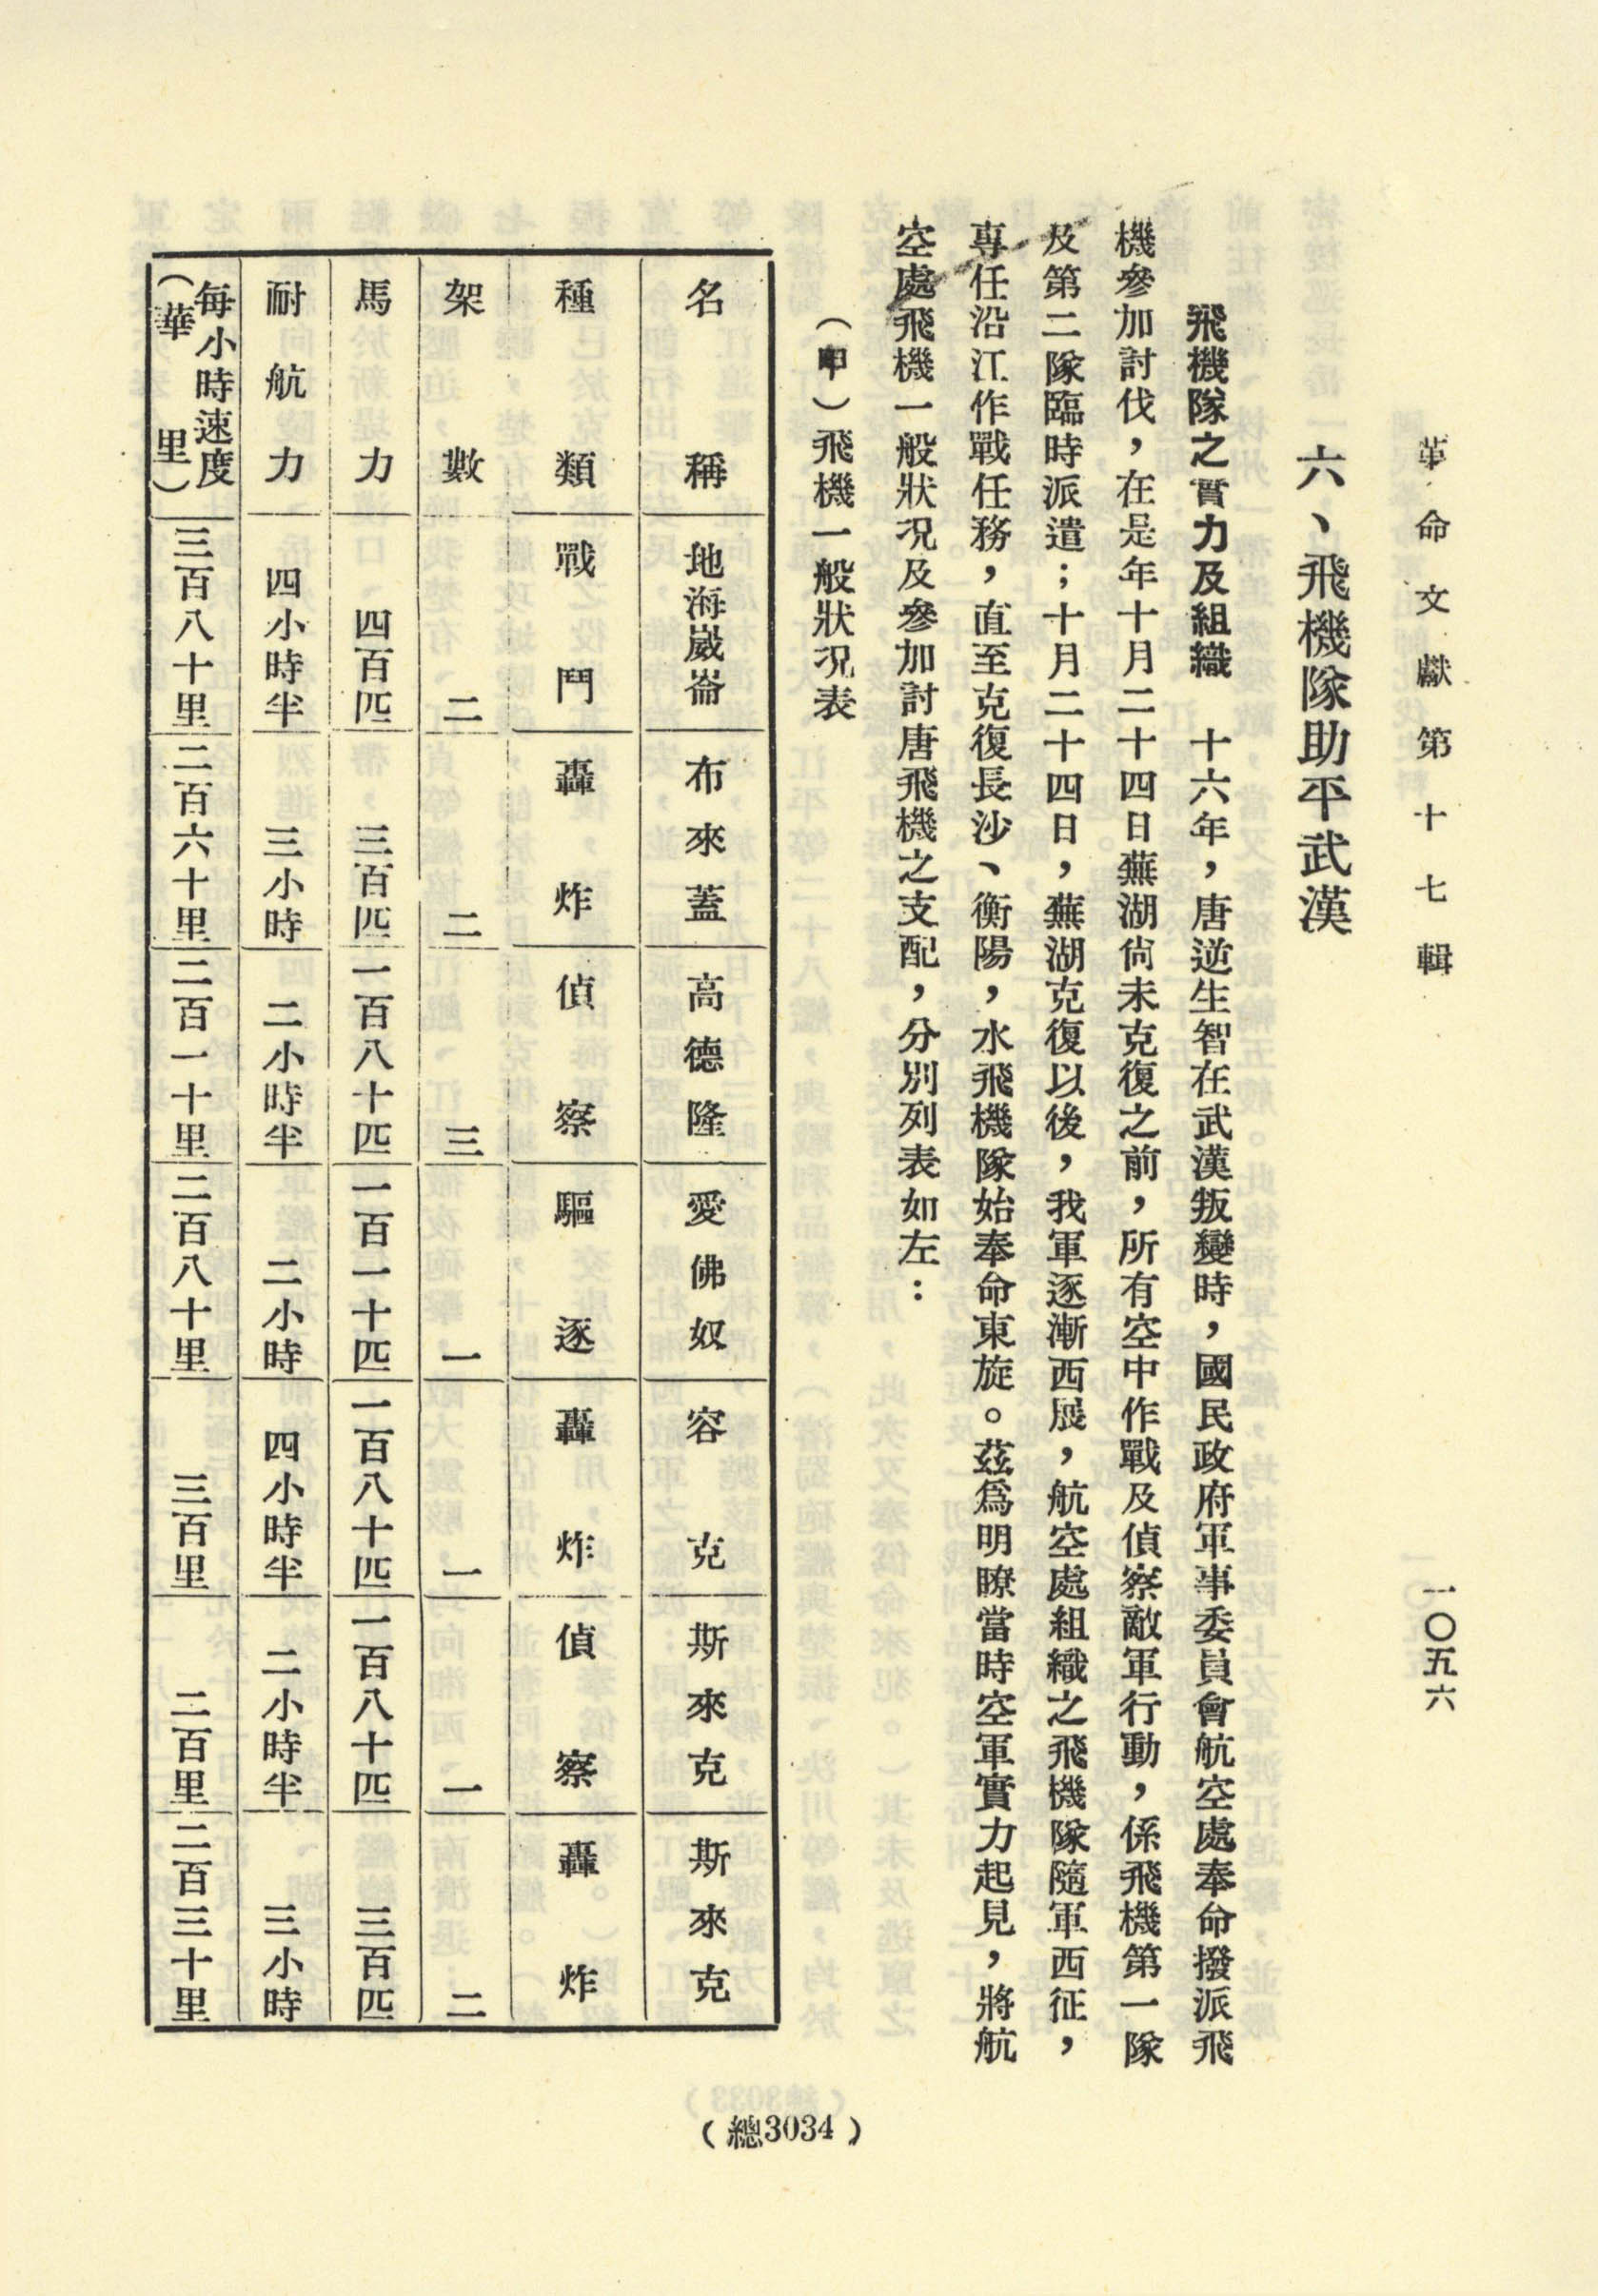 革命文獻第十七輯
一〇五六
六、飛機隊助平武漢
飛機隊之實力及組織　十六年，唐逆生智在武漢叛變時，國民政府軍事委員會航空處奉命撥派飛
機參加討伐，在是年十月二十四日蕪湖尙未克復之前，所有空中作戰及偵察敵軍行動，係飛機第一隊
及第二隊臨時派遣；十月二十四日，蕪湖克復以後，我軍逐漸西展，航空處組織之飛機隊隨軍西征，
專任沿江作戰任務，直至克復長沙、衡陽，水飛機隊始奉命東旋。茲爲明瞭當時空軍實力起見，將航
空處飛機一般狀况及參加討唐飛機之支配，分別列表如左：
（甲）飛機一般狀况表
名稱　地海崴崙　布來蓋　高德隆　愛佛奴　容克　斯來克　斯來克
種類　戰鬥　轟炸　偵察　驅逐　轟炸　偵察　轟炸
架數　二　二　三　一　一　一　二
馬力　四百匹　三百匹　一百八十匹　一百一十匹　一百八十匹　一百八十匹　三百匹
耐航力　四小時半　三小時　二小時半　二小時　四小時半　二小時半　三小時
每小時速度（華里）　三百八十里　二百六十里　二百一十里　二百八十里　三百里　二百里　二百三十里
（總3034）